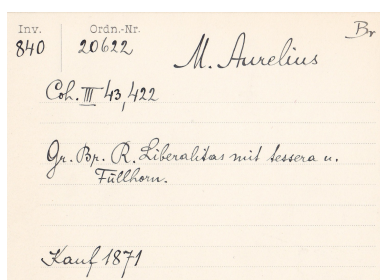 Inv. Ordn.-Nr. Br
840 20622 M. Aurelius
Coh. III 43,422
Gr. Br. R. Liberalitas mit tessera u.
Füllhorn.
Kauf 1871